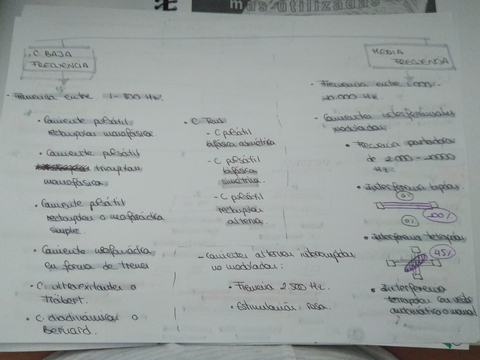 más utilizadas
C BAJA
FRECUENCIA
- Frecuencia entre 1-800 Hz.
• Corriente pulsátil
rectangular monofásica.
• Corriente pulsátil
triangular
monofásica.
• Corriente pulsátil
rectangular o
simple.
• Corriente monofásica
en forma de trenes
• C ultraexcitantes o
Träbert.
• C diadinámicas o
Bernard.
• C
- C pulsátil
bifásica asimétrica
- C pulsátil
bifásica
simétrica
- C pulsátil
rectangular
alterna
- Corrientes alternas interrumpidas
no moduladas:
• Frecuencia 2.500 Hz.
• Estimulación rusa
MEDIA
FRECUENCIA
- Frecuencia entre 1.000-
20.000 Hz.
- Corrientes interferenciales
moduladas:
• Frecuencia portadora
de 2.000-20000
Hz.
• Interferencia bipolar
0%
0%
100%
• Interferencia tetrapolar
45%
• Interferencia
tetrapolar con
automático o manual